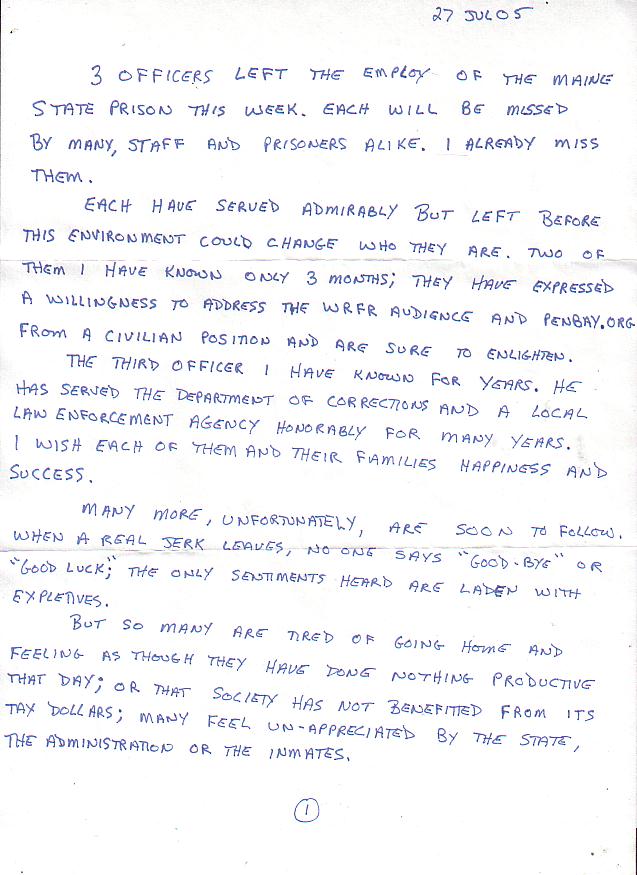 27 JUL 05
3 OFFICERS LEFT THE EMPLOY OF THE MAINE
STATE PRISON THIS WEEK. EACH WILL BE MISSED
BY MANY, STAFF AND PRISONERS ALIKE. I ALREADY MISS
THEM.
EACH HAVE SERVED ADMIRABLY BUT LEFT BEFORE
THIS ENVIRONMENT COULD CHANGE WHO THEY ARE. TWO OF
THEM I HAVE KNOWN ONLY 3 MONTHS; THEY HAVE EXPRESSED
A WILLINGNESS TO ADDRESS THE WRFR AUDIENCE AND PENBAY.ORG
FROM A CIVILIAN POSITION AND ARE SURE TO ENLIGHTEN.
THE THIRD OFFICER I HAVE KNOWN FOR YEARS. HE
HAS SERVED THE DEPARTMENT OF CORRECTIONS AND A LOCAL
LAW ENFORCEMENT AGENCY HONORABLY FOR MANY YEARS.
I WISH EACH OF THEM AND THEIR FAMILIES HAPPINESS AND
SUCCESS.
MANY MORE, UNFORTUNATELY, ARE SOON TO FOLLOW.
WHEN A REAL JERK LEAVES, NO ONE SAYS "GOOD-BYE" OR
"GOOD LUCK"; THE ONLY SENTIMENTS HEARD ARE LADEN WITH
EXPLETIVES.
BUT SO MANY ARE TIRED OF GOING HOME AND
FEELING AS THOUGH THEY HAVE DONE NOTHING PRODUCTIVE
THAT DAY; OR THAT SOCIETY HAS NOT BENEFITED FROM ITS
TAX DOLLARS; MANY FEEL UN-APPRECIATED BY THE STATE,
THE ADMINISTRATION OR THE INMATES.
1